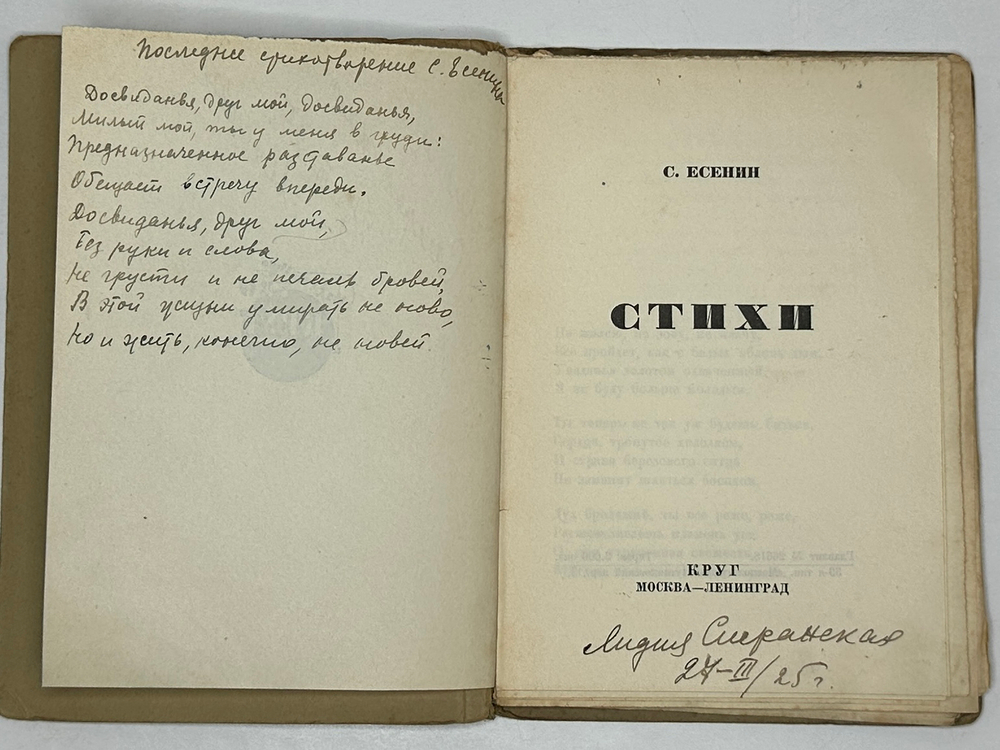 Последнее стихотворение С. Есенина
Досвиданья, друг мой, досвиданья,
Милый мой, ты у меня в груди:
Предназначенное раставанье
Обещает встречу впереди.
Досвиданья, друг мой,
Без руки и слова,
Не грусти и не печаль бровей,
В этой жизни умирать не ново,
Но и жить, конечно, не новей.
С. ЕСЕНИН
СТИХИ
КРУГ
МОСКВА—ЛЕНИНГРАД
Лидия
27–III/25 г.